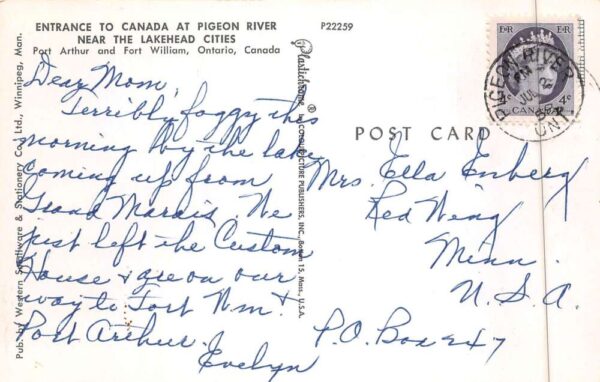 ENTRANCE TO CANADA AT PIGEON RIVER
NEAR THE LAKEHEAD CITIES
Port Arthur and Fort William, Ontario, Canada
P22259
Dear Mom,
Terribly foggy this
morning by the lake
coming up from
Grand Marais. We
just left the Custom
House & are on our
way to Fort Wm. &
Port Arthur.
Evelyn
Pub. by Western Smallware & Stationery Co. Ltd., Winnipeg, Man.
Plastichrome ®
by COLOURPICTURE PUBLISHERS, INC., Boston 15, Mass., U.S.A.
POST CARD
Mrs. Ella Enberg
Red Wing
Minn.
U.S.A.
P.O. Box 247
E II R E II R
CANADA
PIGEON RIVER
PM
ONT